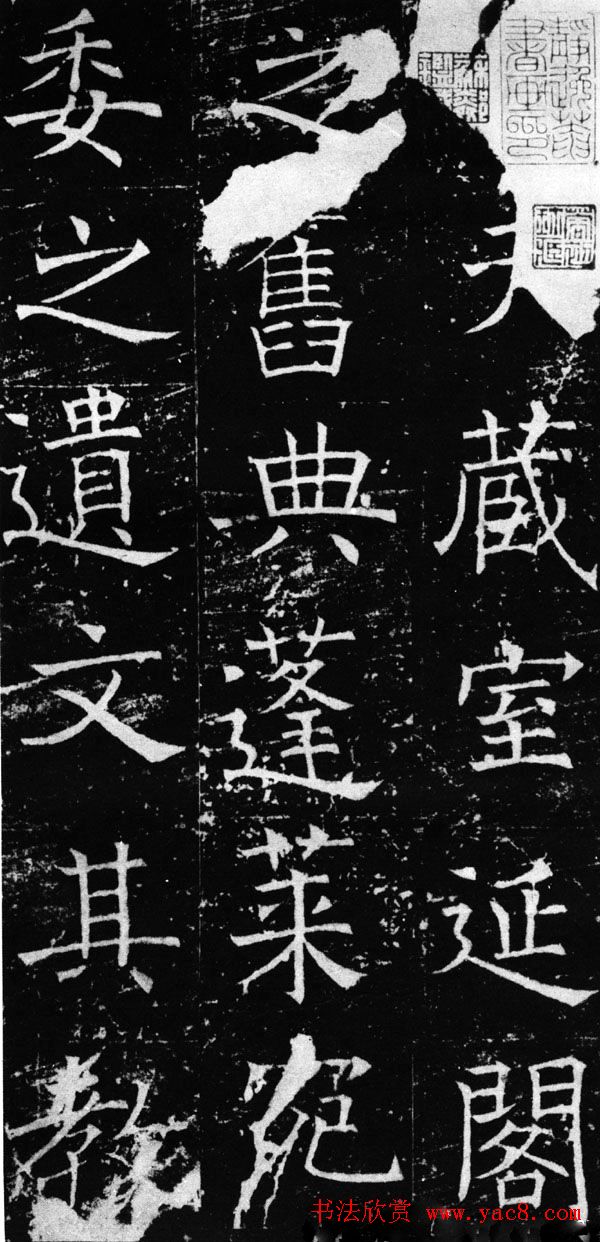 藏室延閣
之舊典蓬萊宛
委之遺文其教
书法欣赏 www.yac8.com